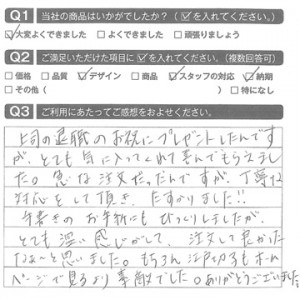 Q1 当社の商品はいかがでしたか?（☑を入れてください。）
☑大変よくできました □よくできました □頑張りましょう
Q2 ご満足いただけた項目に☑を入れてください。（複数回答可）
□価格 □品質 ☑デザイン □商品 ☑スタッフの対応 ☑納期
□その他（ ）□特になし
Q3 ご利用にあたってご感想をおよせください。
上司の退職のお祝にプレゼントしたんです
が、とても気に入ってくれて喜んでもらえまし
た。急な注文だったんですが、丁寧な
対応をして頂き、たすかりました!!
手書きのお手紙にもびっくりしましたが、
とても深い感じがして、注文して良かった
なぁ〜と思いました。もちろん江戸切子もホーム
ページで見るより素敵でした。ありがとうございました